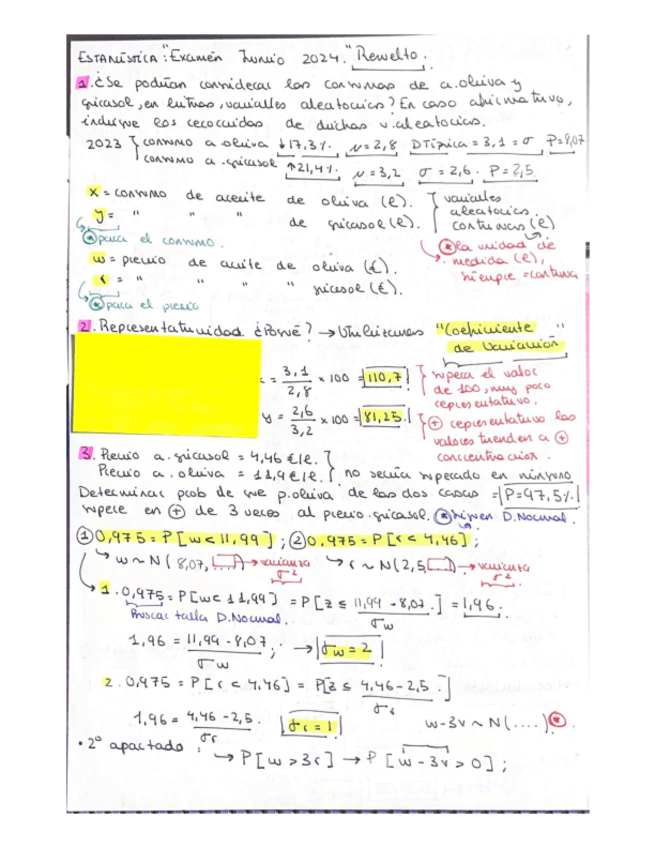 ESTADÍSTICA: "Examen Junio 2024." Resuelto.
1. ¿Se podrían considerar los consumos de a.oliva y
girasol, en litros, variables aleatorias? En caso afirmativo,
indique los recorridos de dichas v.aleatorias.
2023 { consumo a oliva ↓17,3%. μ=2,8 DTípica = 3,1 = σ P=8,07
consumo a.girasol ↑21,4%. μ=3,2 σ=2,6. P=2,5
x = consumo de aceite de oliva (l).
y = " " " de girasol (l).
variables
aleatorias
continuas (l)
* para el consumo.
* la unidad de
medida (l),
siempre = continua
w = precio de aceite de oliva (€).
r = " " " " girasol (€).
* para el precio
2. Representatividad ¿Porqué? → Utilizamos "Coeficiente
de Variación"
= 3,1 / 2,8 × 100 = 110,7
supera el valor
de 100, muy poco
representativo.
y = 2,6 / 3,2 × 100 = 81,25.
+ representativo los
valores tienden a +
concentración.
3. Precio a.girasol = 4,46 €/l.
Precio a.oliva = 11,9 €/l. no sería superado en ninguno
Determinar prob de que p.oliva de los dos casos = P=97,5%.
supere en + de 3 veces al precio girasol. * siguen D.Normal.
① 0,975 = P[w < 11,99]; ② 0,975 = P[r < 4,46];
w ~ N(8,07, ....) → varianza σ² r ~ N(2,5, ) → varianza σ²
1. 0,975 = P[w < 11,99] = P[z ≤ 11,99 - 8,07 / σw] = 1,96.
Buscar tabla D.Normal.
1,96 = 11,99 - 8,07 / σw; → σw = 2
2. 0,975 = P[r < 4,46] = P[z ≤ 4,46 - 2,5 / σr]
1,96 = 4,46 - 2,5 / σr. σr = 1 w-3r ~ N(....) *.
• 2º apartado : → P[w > 3r] → P[w - 3r > 0];